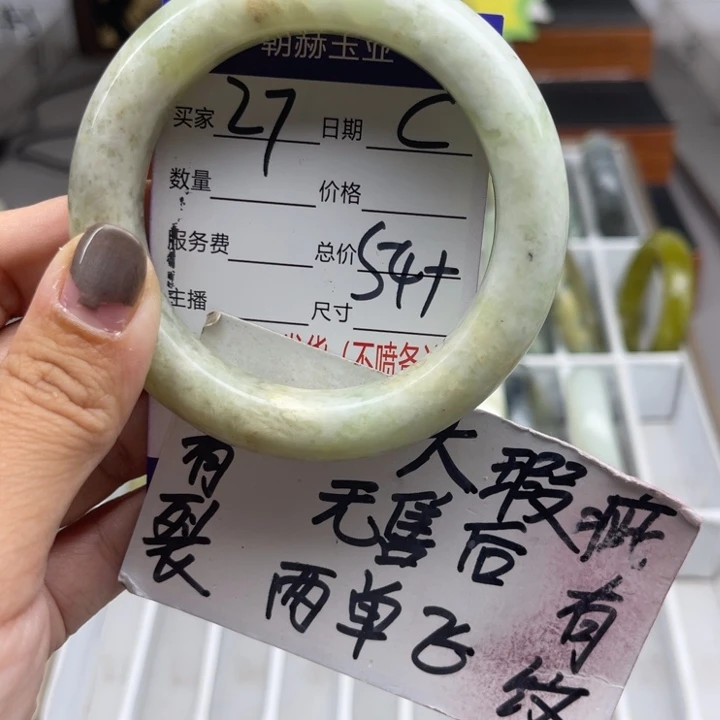 朝赫玉业
买家 27 日期 C
数量 价格
服务费 总价 54+
主播 尺寸
发货（不喷各
有裂
大瑕疵
无售后
有纹
两单飞